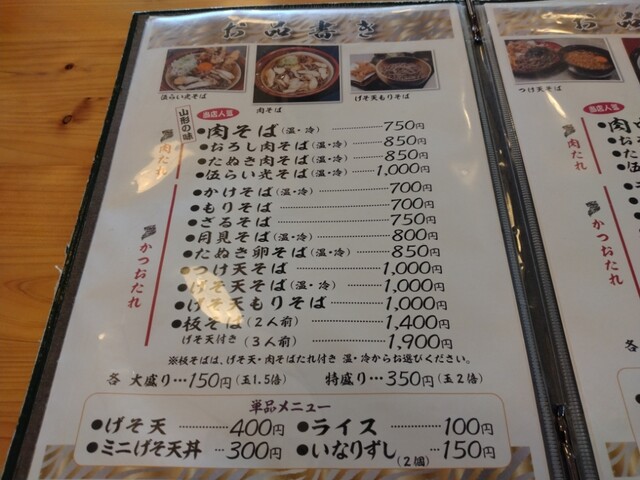 お品書き
伍らい光そば
肉そば
げそ天もりそば
山形の味
当店人気
肉だれ
●肉そば(温・冷) 750円
●おろし肉そば(温・冷) 850円
●たぬき肉そば(温・冷) 850円
●伍らい光そば(温・冷) 1,000円
かつおだれ
●かけそば(温・冷) 700円
●もりそば 700円
●ざるそば 750円
●月見そば(温・冷) 800円
●たぬき卵そば(温・冷) 850円
●つけ天そば 1,000円
●げそ天そば(温・冷) 1,000円
●げそ天もりそば 1,000円
●板そば(2人前) 1,400円
げそ天付き(3人前) 1,900円
※板そばは、げそ天・肉そばたれ付き 温・冷からお選びください。
各 大盛り…150円(玉1.5倍) 特盛り…350円(玉2倍)
単品メニュー
●げそ天 400円 ●ライス 100円
●ミニげそ天丼 300円 ●いなりずし(2個) 150円
つけ天そば
当店人気
肉だれ
かつおだれ